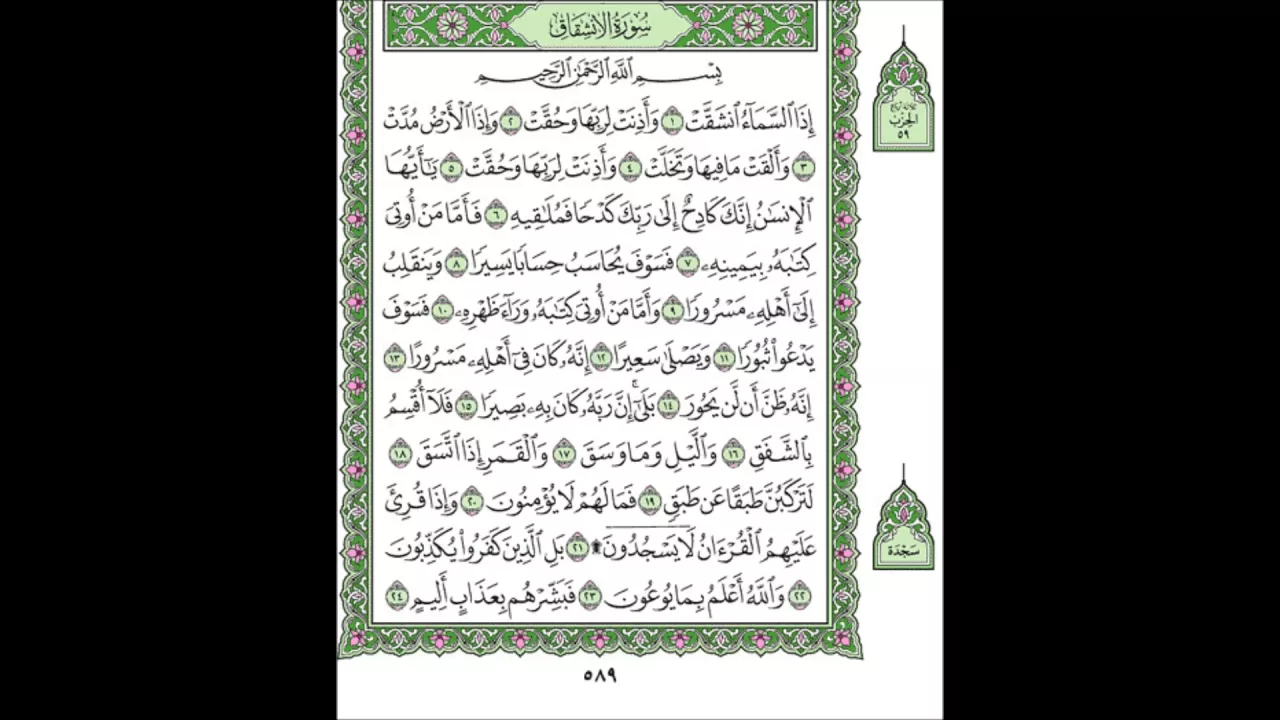 سُورَةُ الانشِقَاقِ
بِسْمِ ٱللَّهِ ٱلرَّحْمَٰنِ ٱلرَّحِيمِ
إِذَا ٱلسَّمَآءُ ٱنشَقَّتْ ١ وَأَذِنَتْ لِرَبِّهَا وَحُقَّتْ ٢ وَإِذَا ٱلْأَرْضُ مُدَّتْ
٣ وَأَلْقَتْ مَا فِيهَا وَتَخَلَّتْ ٤ وَأَذِنَتْ لِرَبِّهَا وَحُقَّتْ ٥ يَٰٓأَيُّهَا
ٱلْإِنسَٰنُ إِنَّكَ كَادِحٌ إِلَىٰ رَبِّكَ كَدْحًا فَمُلَٰقِيهِ ٦ فَأَمَّا مَنْ أُوتِىَ
كِتَٰبَهُۥ بِيَمِينِهِۦ ٧ فَسَوْفَ يُحَاسَبُ حِسَابًا يَسِيرًا ٨ وَيَنقَلِبُ
إِلَىٰٓ أَهْلِهِۦ مَسْرُورًا ٩ وَأَمَّا مَنْ أُوتِىَ كِتَٰبَهُۥ وَرَآءَ ظَهْرِهِۦ ١٠ فَسَوْفَ
يَدْعُوا۟ ثُبُورًا ١١ وَيَصْلَىٰ سَعِيرًا ١٢ إِنَّهُۥ كَانَ فِىٓ أَهْلِهِۦ مَسْرُورًا ١٣
إِنَّهُۥ ظَنَّ أَن لَّن يَحُورَ ١٤ بَلَىٰٓۚ إِنَّ رَبَّهُۥ كَانَ بِهِۦ بَصِيرًا ١٥ فَلَآ أُقْسِمُ
بِٱلشَّفَقِ ١٦ وَٱلَّيْلِ وَمَا وَسَقَ ١٧ وَٱلْقَمَرِ إِذَا ٱتَّسَقَ ١٨
لَتَرْكَبُنَّ طَبَقًا عَن طَبَقٍ ١٩ فَمَا لَهُمْ لَا يُؤْمِنُونَ ٢٠ وَإِذَا قُرِئَ
عَلَيْهِمُ ٱلْقُرْءَانُ لَا يَسْجُدُونَ ۩ ٢١ بَلِ ٱلَّذِينَ كَفَرُوا۟ يُكَذِّبُونَ
٢٢ وَٱللَّهُ أَعْلَمُ بِمَا يُوعُونَ ٢٣ فَبَشِّرْهُم بِعَذَابٍ أَلِيمٍ ٢٤
٥٨٩
الحِزْب
٥٩
سَجْدَة